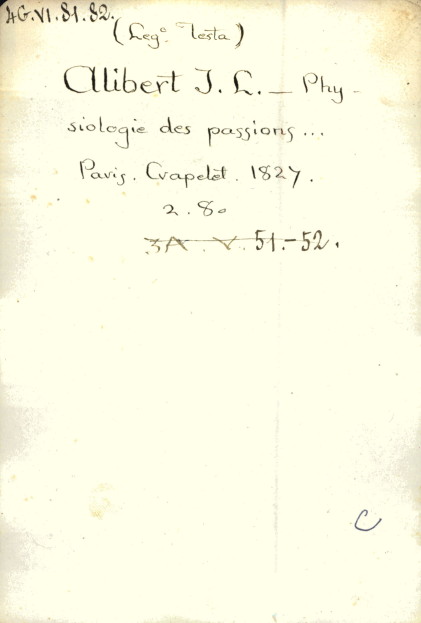 4G.VI.81.82.
(Leg.º Testa)
Alibert J. L. _ Phy-
siologie des passions ...
Paris. Crapelet. 1827.
2. 8º
3A. V. 51.-52.
C